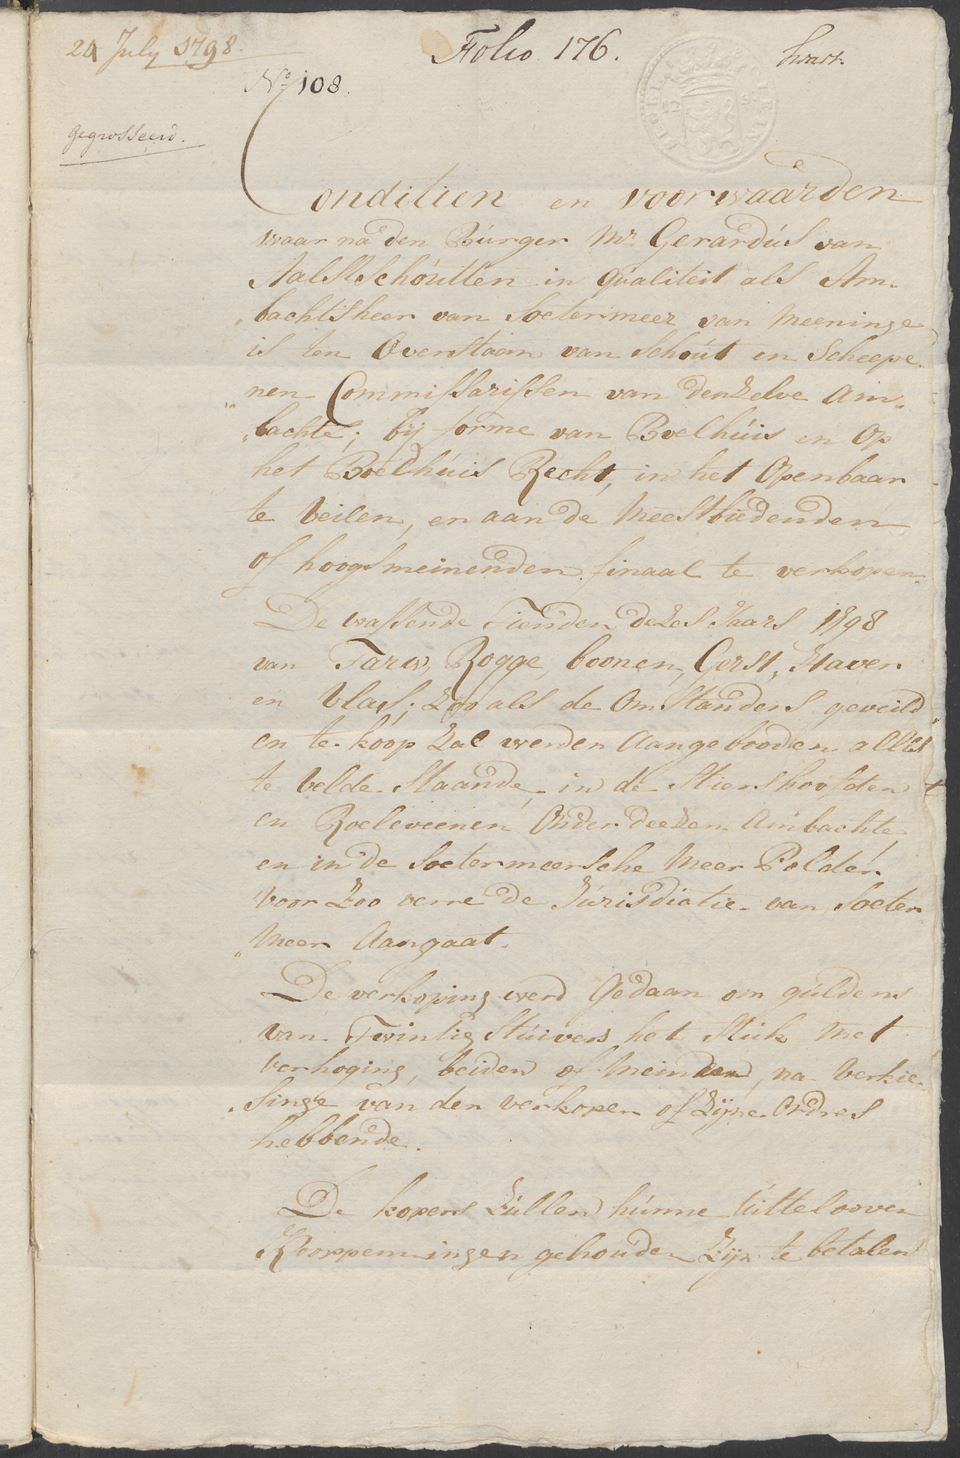 24 July 1798.
Folio 176.
No 108.
gegrosseerd.
Conditien en voorwaarden
waar na den Burger Mr Gerardus van
Aalst Schouten in qualiteit als Am-
„bachtsheer van Soetermeer van meeninge
is ten Overstaan van Schout en Scheepe-
nen Commissarissen van denzelve Am-
„bachte, bij forme van Boelhuis en op
het Boelhuis Recht, in het Openbaar
te veilen, en aan de Meestbiedenden
of hoogsmeinenden finaal te verkopen.
De wassende Tienden dezes Jaars 1798
van Tarw, Rogge, boonen, Gerst, Haver
en Vlas, zoo als de Omstanders geveild
en te koop zal werden Aangebooden alles
te velde Staande, in de Stiershoofden
en Roeleveenen Onder deezen Ambachte
en in de Soetermeersche Meer Polder
voor zoo verre de Jurisdictie van Soeter
„meer Aangaat.
De verkoping werd Gedaan om guldens
van Twintig Stuivers het Stuk met
verhoging, beiden of meinden, na verkie-
„singe van den verkoper of zijne Ordres
hebbende.
De kopers zullen hunne uitteloover
Kooppenningen gehouden zijn te betalen